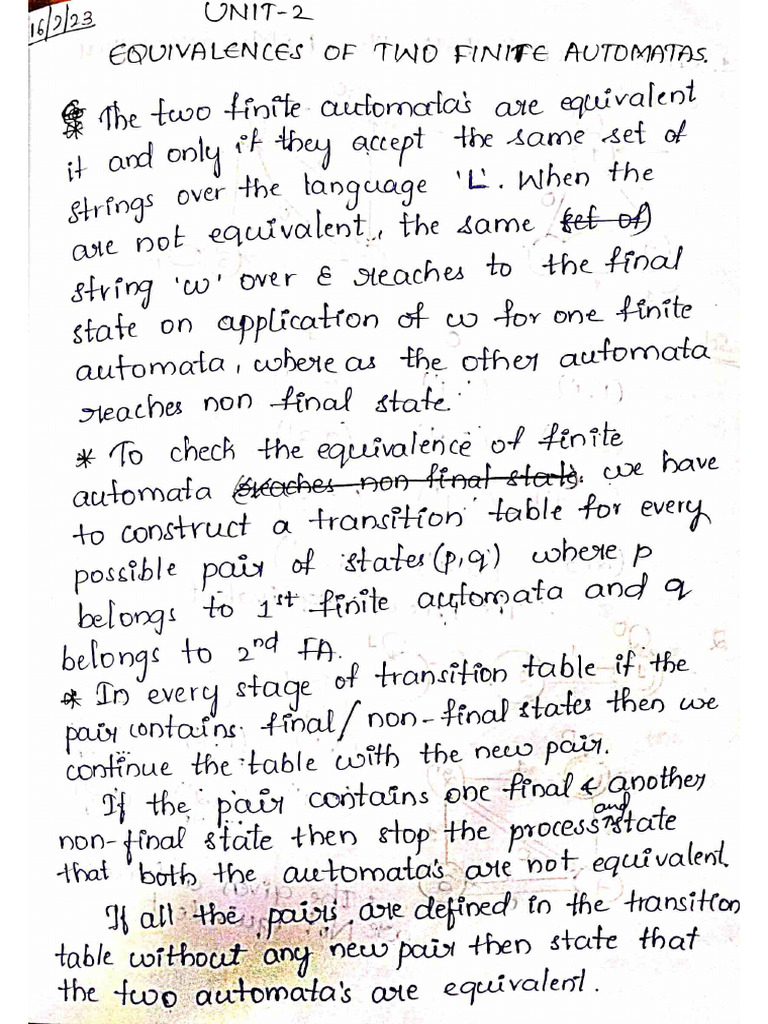 16/2/23
UNIT-2
EQUIVALENCES OF TWO FINITE AUTOMATAS.
* The two finite automata's are equivalent
it and only if they accept the same set of
strings over the language 'L'. When the
are not equivalent, the same set of
string 'w' over ε reaches to the final
state on application of w for one finite
automata, where as the other automata
reaches non final state.
* To check the equivalence of finite
automata reaches non final state. we have
to construct a transition table for every
possible pair of states (p,q) where p
belongs to 1st finite automata and q
belongs to 2nd FA.
* In every stage of transition table if the
pair contains final/non-final states then we
continue the table with the new pair.
If the pair contains one final & another
non-final state then stop the process and state
that both the automata's are not equivalent.
If all the pairs are defined in the transition
table without any new pair then state that
the two automata's are equivalent.